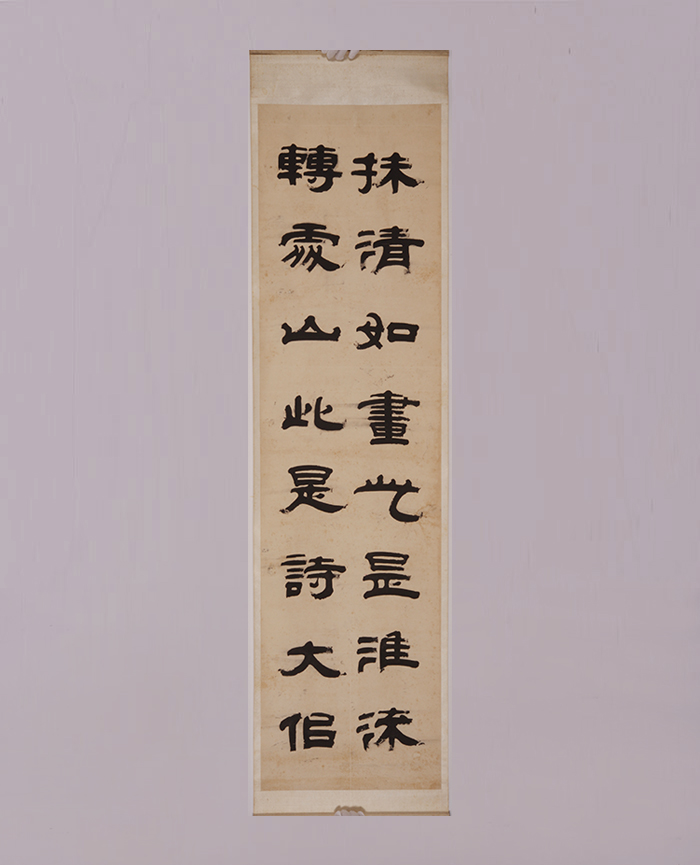 抹清如畫此是淮流
轉處山此是詩大